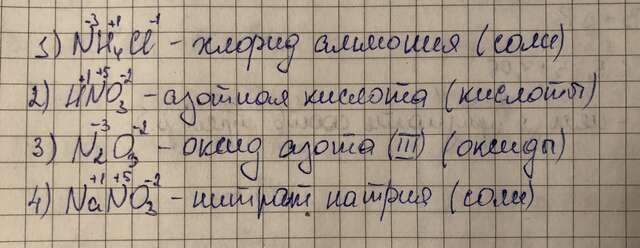 1) N⁻³H₄⁺¹Cl⁻¹ – хлорид аммония (соли)
2) H⁺¹N⁺⁵O₃⁻² – азотная кислота (кислоты)
3) N₂⁻³O₃⁻² – оксид азота (III) (оксиды)
4) Na⁺¹N⁺⁵O₃⁻² – нитрат натрия (соли)